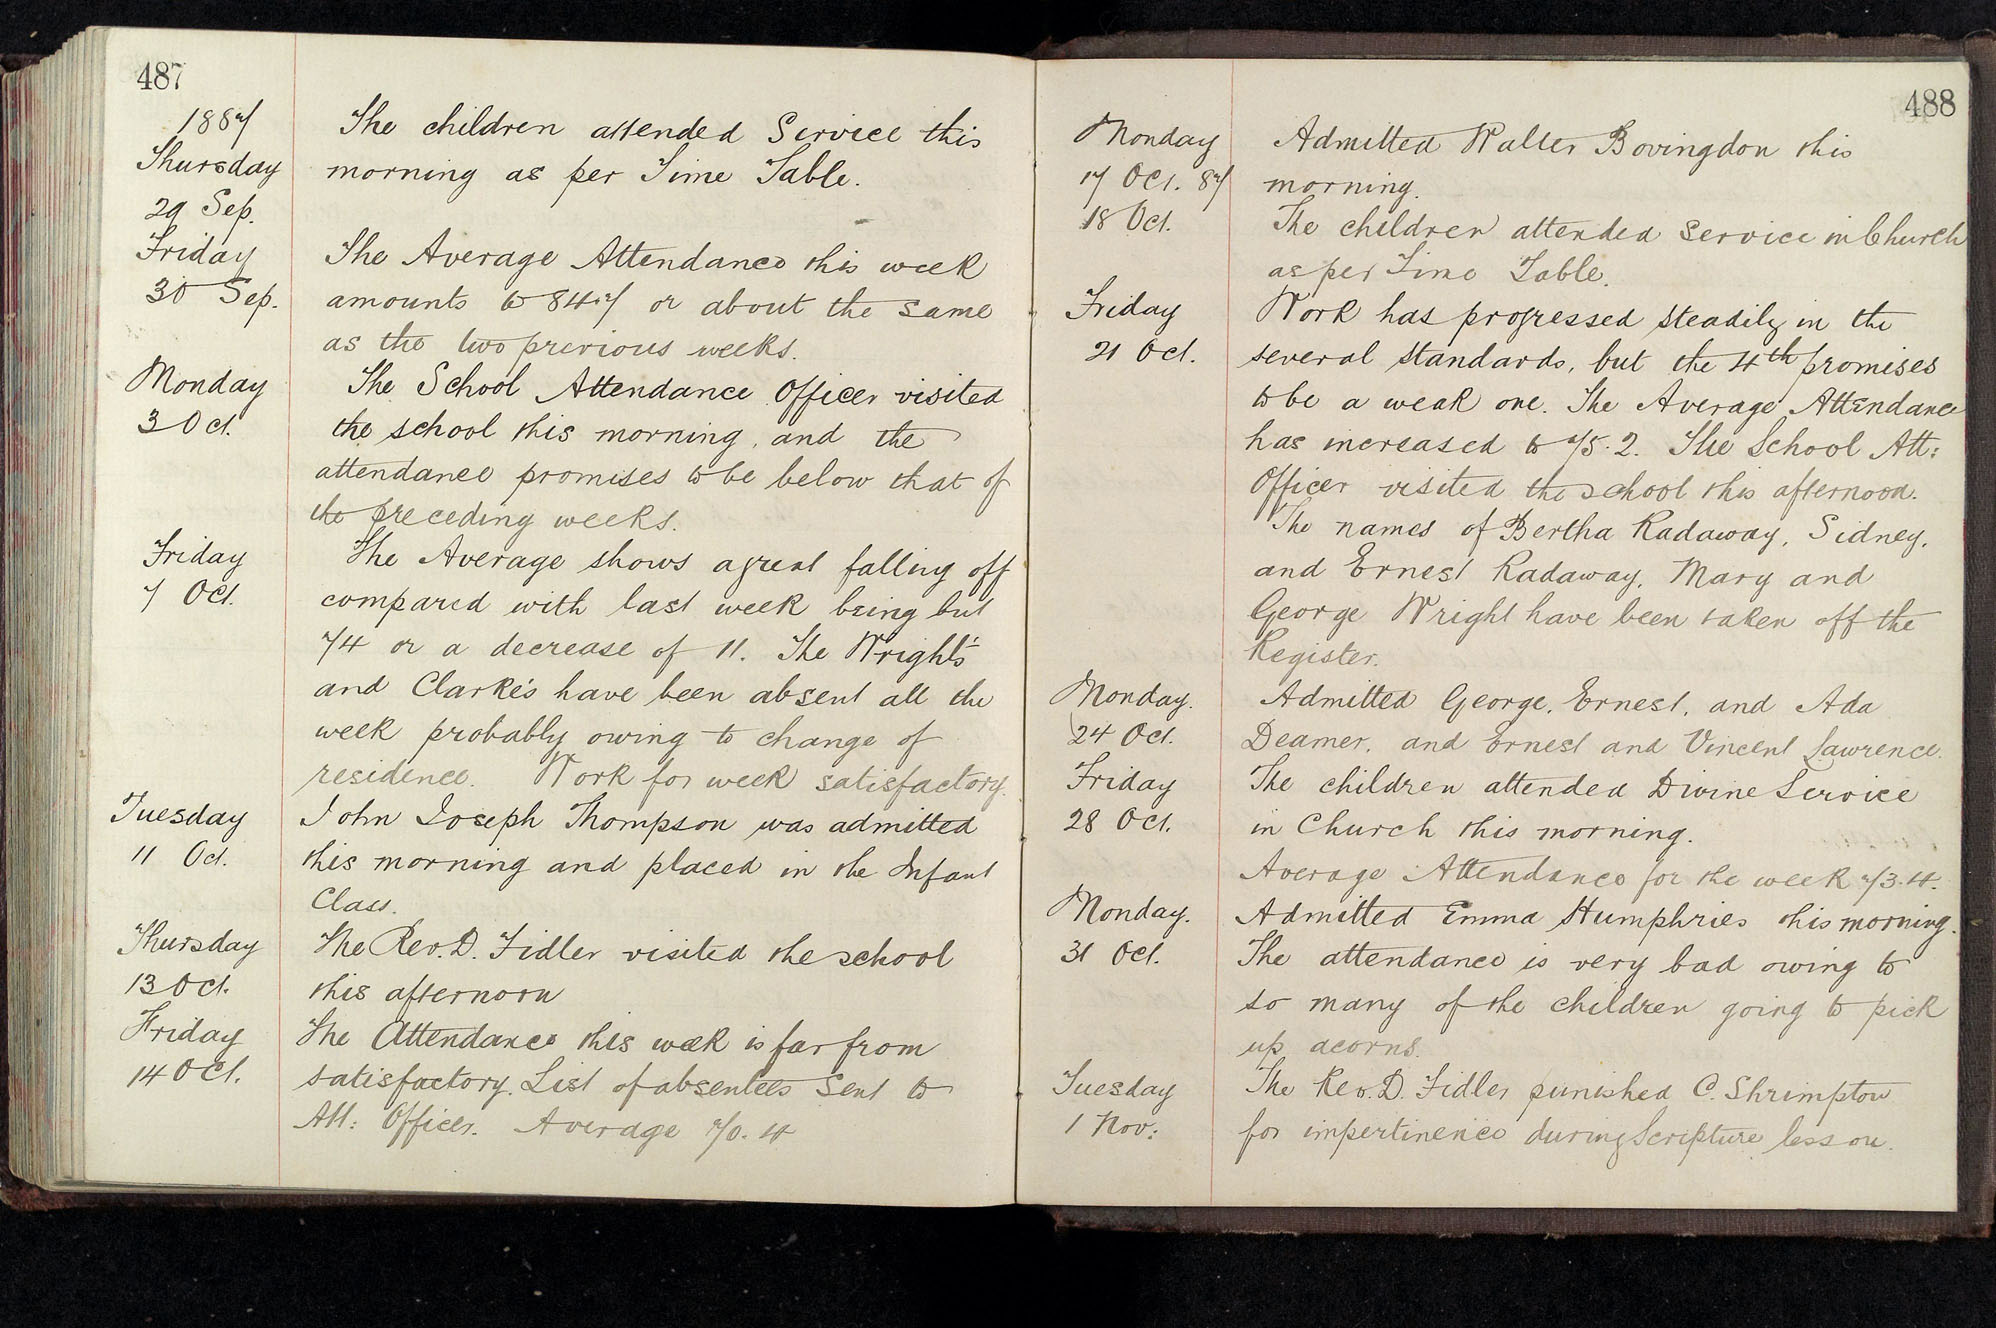 487
1887
Thursday
29 Sep.
The children attended Service this
morning as per Time Table.
Friday
30 Sep.
The Average Attendance this week
amounts to 84.7 or about the same
as the two previous weeks.
Monday
3 Oct.
The School Attendance Officer visited
the school this morning, and the
attendance promises to be below that of
the preceding weeks.
Friday
7 Oct.
The Average shows a great falling off
compared with last week being but
74 or a decrease of 11. The Wright's
and Clarke's have been absent all the
week probably owing to change of
residence. Work for week satisfactory.
Tuesday
11 Oct.
John Joseph Thompson was admitted
this morning and placed in the Infant
Class.
Thursday
13 Oct.
The Rev. D. Fidler visited the school
this afternoon
Friday
14 Oct.
The Attendance this week is far from
satisfactory. List of absentees sent to
Att: Officer. Average 70.4
488
Monday
17 Oct. 87
Admitted Walter Bovingdon this
morning.
18 Oct.
The children attended service in Church
as per Time Table.
Friday
21 Oct.
Work has progressed steadily in the
several standards, but the 4th promises
to be a weak one. The Average Attendance
has increased to 75.2. The School Att:
Officer visited the school this afternoon.
The names of Bertha Radaway, Sidney,
and Ernest Radaway, Mary and
George Wright have been taken off the
Register.
Monday.
24 Oct.
Admitted George, Ernest, and Ada
Deamer, and Ernest and Vincent Lawrence.
Friday
28 Oct.
The children attended Divine Service
in Church this morning.
Average Attendance for the week 73.4.
Monday.
31 Oct.
Admitted Emma Humphries this morning.
The attendance is very bad owing to
so many of the children going to pick
up acorns.
Tuesday
1 Nov:
The Rev. D. Fidler punished C. Shrimpton
for impertinence during Scripture lesson.